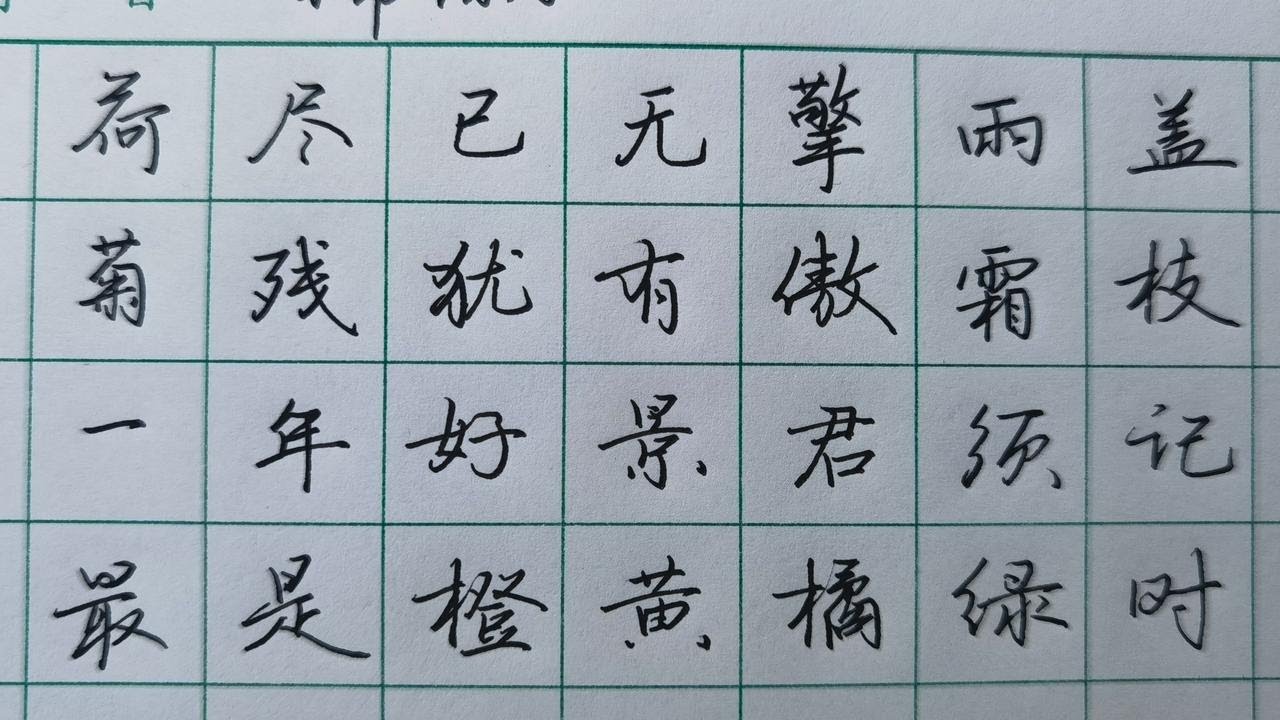 荷尽已无擎雨盖
菊残犹有傲霜枝
一年好景君须记
最是橙黄橘绿时